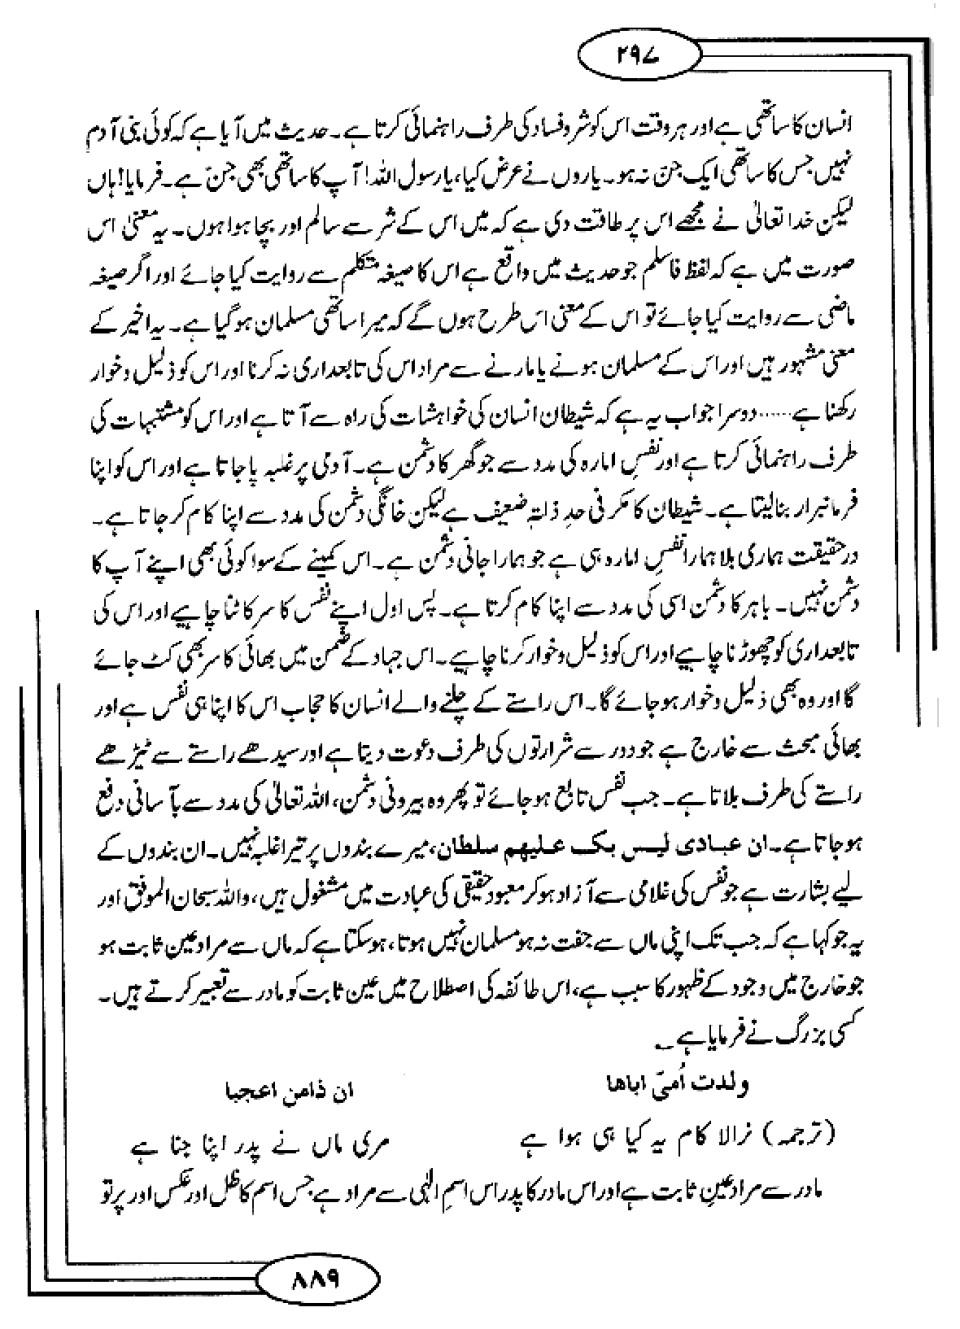 ۲۹۷
انسان کا ساتھی ہے اور ہر وقت اس کو شر و فساد کی طرف راہنمائی کرتا ہے۔ حدیث میں آیا ہے کہ کوئی بنی آدم
نہیں جس کا ساتھی ایک جن نہ ہو۔ یاروں نے عرض کیا، یا رسول اللہ! آپ کا ساتھی بھی جن ہے۔ فرمایا! ہاں
لیکن خدا تعالیٰ نے مجھے اس پر طاقت دی ہے کہ میں اس کے شر سے سالم اور بچا ہوا ہوں۔ یہ معنی اس
صورت میں ہے کہ لفظ فاسلم جو حدیث میں واقع ہے اس کا صیغہ متکلم سے روایت کیا جائے اور اگر صیغہ
ماضی سے روایت کیا جائے تو اس کے معنی اس طرح ہوں گے کہ میرا ساتھی مسلمان ہو گیا ہے۔ یہ اخیر کے
معنی مشہور ہیں اور اس کے مسلمان ہونے یا مارنے سے مراد اس کی تابعداری نہ کرنا اور اس کو ذلیل و خوار
رکھنا ہے...... دوسرا جواب یہ ہے کہ شیطان انسان کی خواہشات کی راہ سے آتا ہے اور اس کو مشتبہات کی
طرف راہنمائی کرتا ہے اور نفس امارہ کی مدد سے جو گھر کا دشمن ہے۔ آدمی پر غلبہ پا جاتا ہے اور اس کو اپنا
فرمانبرار بنا لیتا ہے۔ شیطان کا مکر فی حد ذاتہ ضعیف ہے لیکن خانگی دشمن کی مدد سے اپنا کام کر جاتا ہے۔
در حقیقت ہماری بلا ہمارا نفس امارہ ہی ہے جو ہمارا جانی دشمن ہے۔ اس کمینے کے سوا کوئی بھی اپنے آپ کا
دشمن نہیں۔ باہر کا دشمن اسی کی مدد سے اپنا کام کرتا ہے۔ پس اول اپنے نفس کا سر کاٹنا چاہیے اور اس کی
تابعداری کو چھوڑنا چاہیے اور اس کو ذلیل و خوار کرنا چاہیے۔ اس جہاد کے ضمن میں بھائی کا سر بھی کٹ جائے
گا اور وہ بھی ذلیل و خوار ہو جائے گا۔ اس راستے کے چلنے والے انسان کا حجاب اس کا اپنا ہی نفس ہے اور
بھائی مبحث سے خارج ہے جو دور سے شرارتوں کی طرف دعوت دیتا ہے اور سیدھے راستے سے ٹیڑھے
راستے کی طرف بلاتا ہے۔ جب نفس تابع ہو جائے تو پھر وہ بیرونی دشمن، اللہ تعالیٰ کی مدد سے بآسانی دفع
ہو جاتا ہے۔ ان عبادی لیس بک علیہم سلطان، میرے بندوں پر تیرا غلبہ نہیں۔ ان بندوں کے
لیے بشارت ہے جو نفس کی غلامی سے آزاد ہو کر معبود حقیقی کی عبادت میں مشغول ہیں، واللہ سبحان الموفق اور
یہ جو کہا ہے کہ جب تک اپنی ماں سے جفت نہ ہو مسلمان نہیں ہوتا، ہو سکتا ہے کہ ماں سے مراد عین ثابت ہو
جو خارج میں وجود کے ظہور کا سبب ہے، اس طائفہ کی اصطلاح میں عین ثابت کو مادر سے تعبیر کرتے ہیں۔
کسی بزرگ نے فرمایا ہے ؎
ولدت اُمیّ اباھا ان ذامن اعجبا
(ترجمہ) نرالا کام یہ کیا ہی ہوا ہے مری ماں نے پدر اپنا جنا ہے
مادر سے مراد عین ثابت ہے اور اس مادر کا پدر اس اسم الٰہی سے مراد ہے جس اسم کا ظل اور عکس اور پرتو
۸۸۹